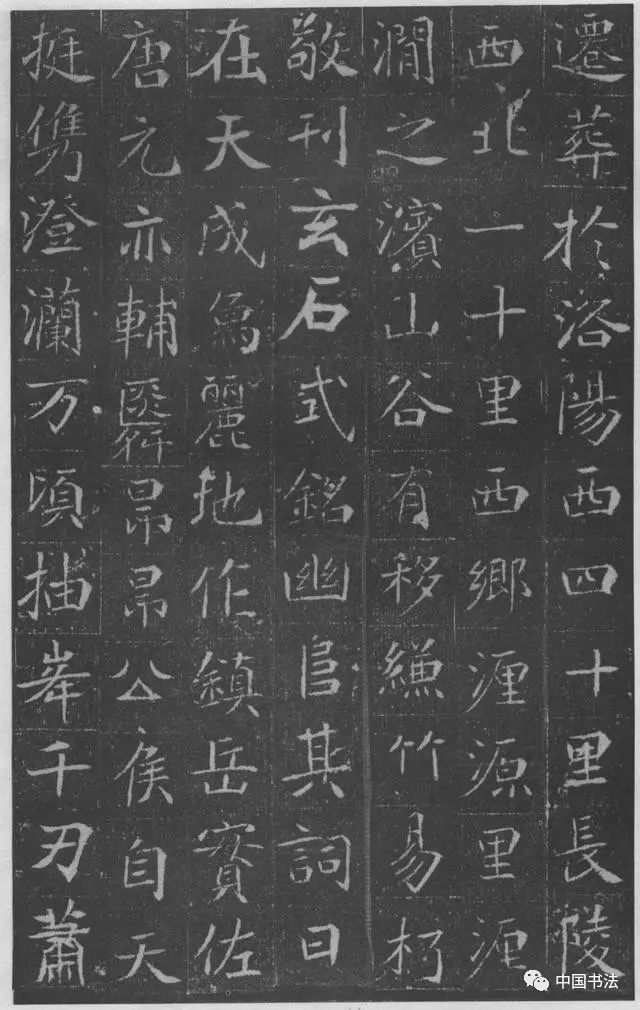 遷葬於洛陽西四十里長陵
西北一十里西鄉瀍源里瀍
澗之濱山谷有移縑竹易朽
敬刊玄石式銘幽其詞曰
在天成象麗地作鎮岳賓佐
唐元亦輔昂昂公侯自天
挺儁澄瀾万頃插峯千刃蕭
中国书法